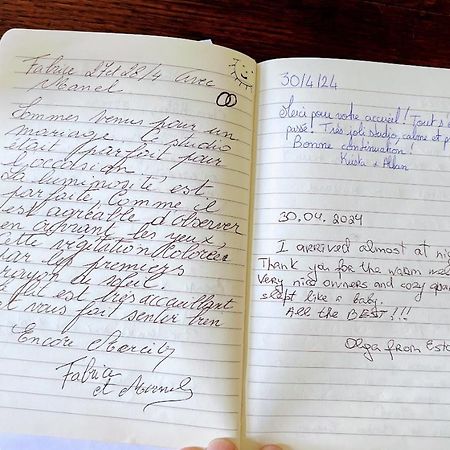 Fabrice 27 et 28/4 avec
Manel
Sommes venus pour un
mariage, le studio
était parfait pour
l'occasion
La luminosité est
parfaite, comme il
est agréable d'observer
en ouvrant les yeux
cette végétation colorée
par les premiers
rayon de soleil.
Le lit est très accueillant
et vous fait sentir
Encore Merci
Fabrice
et Manel
30/4/24
Merci pour votre accueil! Tout s'
passé! Très joli studio, calme et p
Bonne continuation!
30.04.2024
I arrived almost at nig
Thank you for the warm wel
very nice owners and cozy apar
slept like a baby.
All the BEST!!!
Olga from Esto